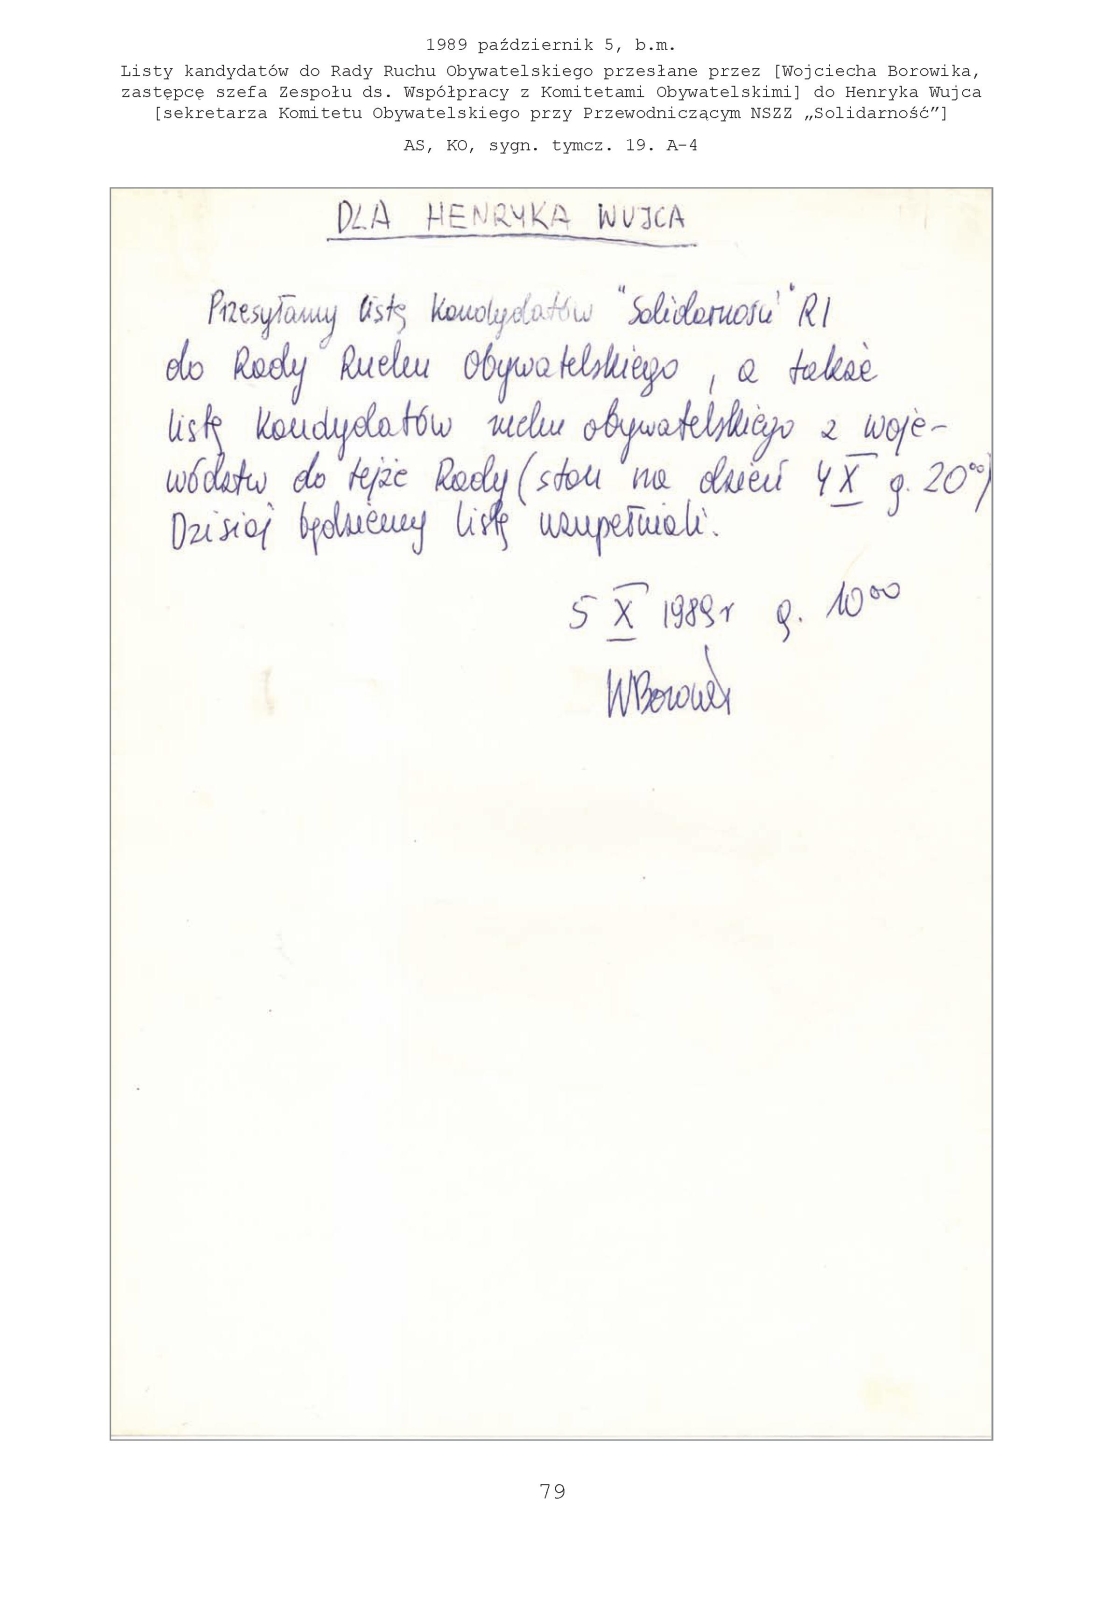 1989 październik 5, b.m.
Listy kandydatów do Rady Ruchu Obywatelskiego przesłane przez [Wojciecha Borowika,
zastępcę szefa Zespołu ds. Współpracy z Komitetami Obywatelskimi] do Henryka Wujca
[sekretarza Komitetu Obywatelskiego przy Przewodniczącym NSZZ „Solidarność”]
AS, KO, sygn. tymcz. 19. A-4
DLA HENRYKA WUJCA
Przesyłamy listę kandydatów "Solidarność" RI
do Rady Ruchu Obywatelskiego, a także
listę kandydatów ruchu obywatelskiego z woje-
wództw do tejże Rady (stan na dzień 4 X g. 20⁰⁰)
Dzisiaj będziemy listę uzupełniali.
5 X 1989 r g. 10⁰⁰
WBorowik
79